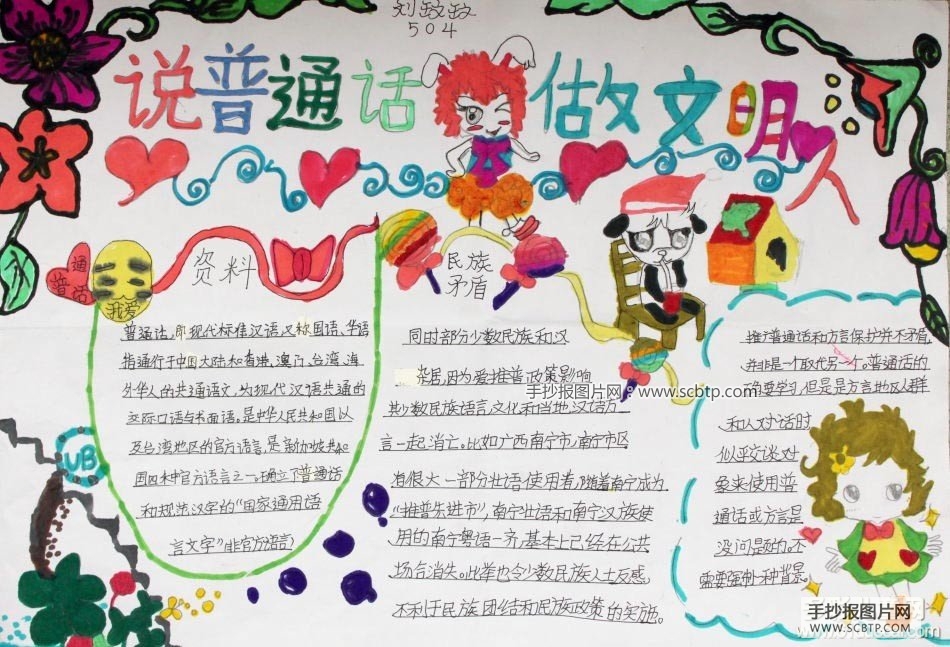 刘政政
504
说普通话 做文明人
通
普话
我爱
资料
普通话,即现代标准汉语,又称国语、华语
指通行于中国大陆和香港、澳门、台湾、海
外华人的共通语文,为现代汉语共通的
交际口语与书面语,是中华人民共和国以
及台湾地区的官方语言,是新加坡共和
国四种官方语言之一。确立了普通话
和规范汉字的“国家通用语
言文字”非官方语言)
民族
矛盾
同时部分少数民族和汉
杂居,因为受推普政策影响
其少数民族语言,文化和当地汉语方
言一起消亡。比如广西南宁市,南宁市区
有很大一部分壮语使用者,随着南宁成为
“推普先进市”,南宁壮语和南宁汉族使
用的南宁粤语一齐,基本上已经在公共
场合消失。此举也令少数民族人士反感,
不利于民族团结和民族政策的实施。
推广普通话和方言保护并不矛盾,
并非是一个取代另一个。普通话的
确要学习,但是是方言地区人群
和人对话时
似乎交谈对
象来使用普
通话或方言是
没问题的。不
需要强制一种背景
UB
手抄报图片网 www.scbtp.com
手抄报图片网
WWW.SCBTP.COM